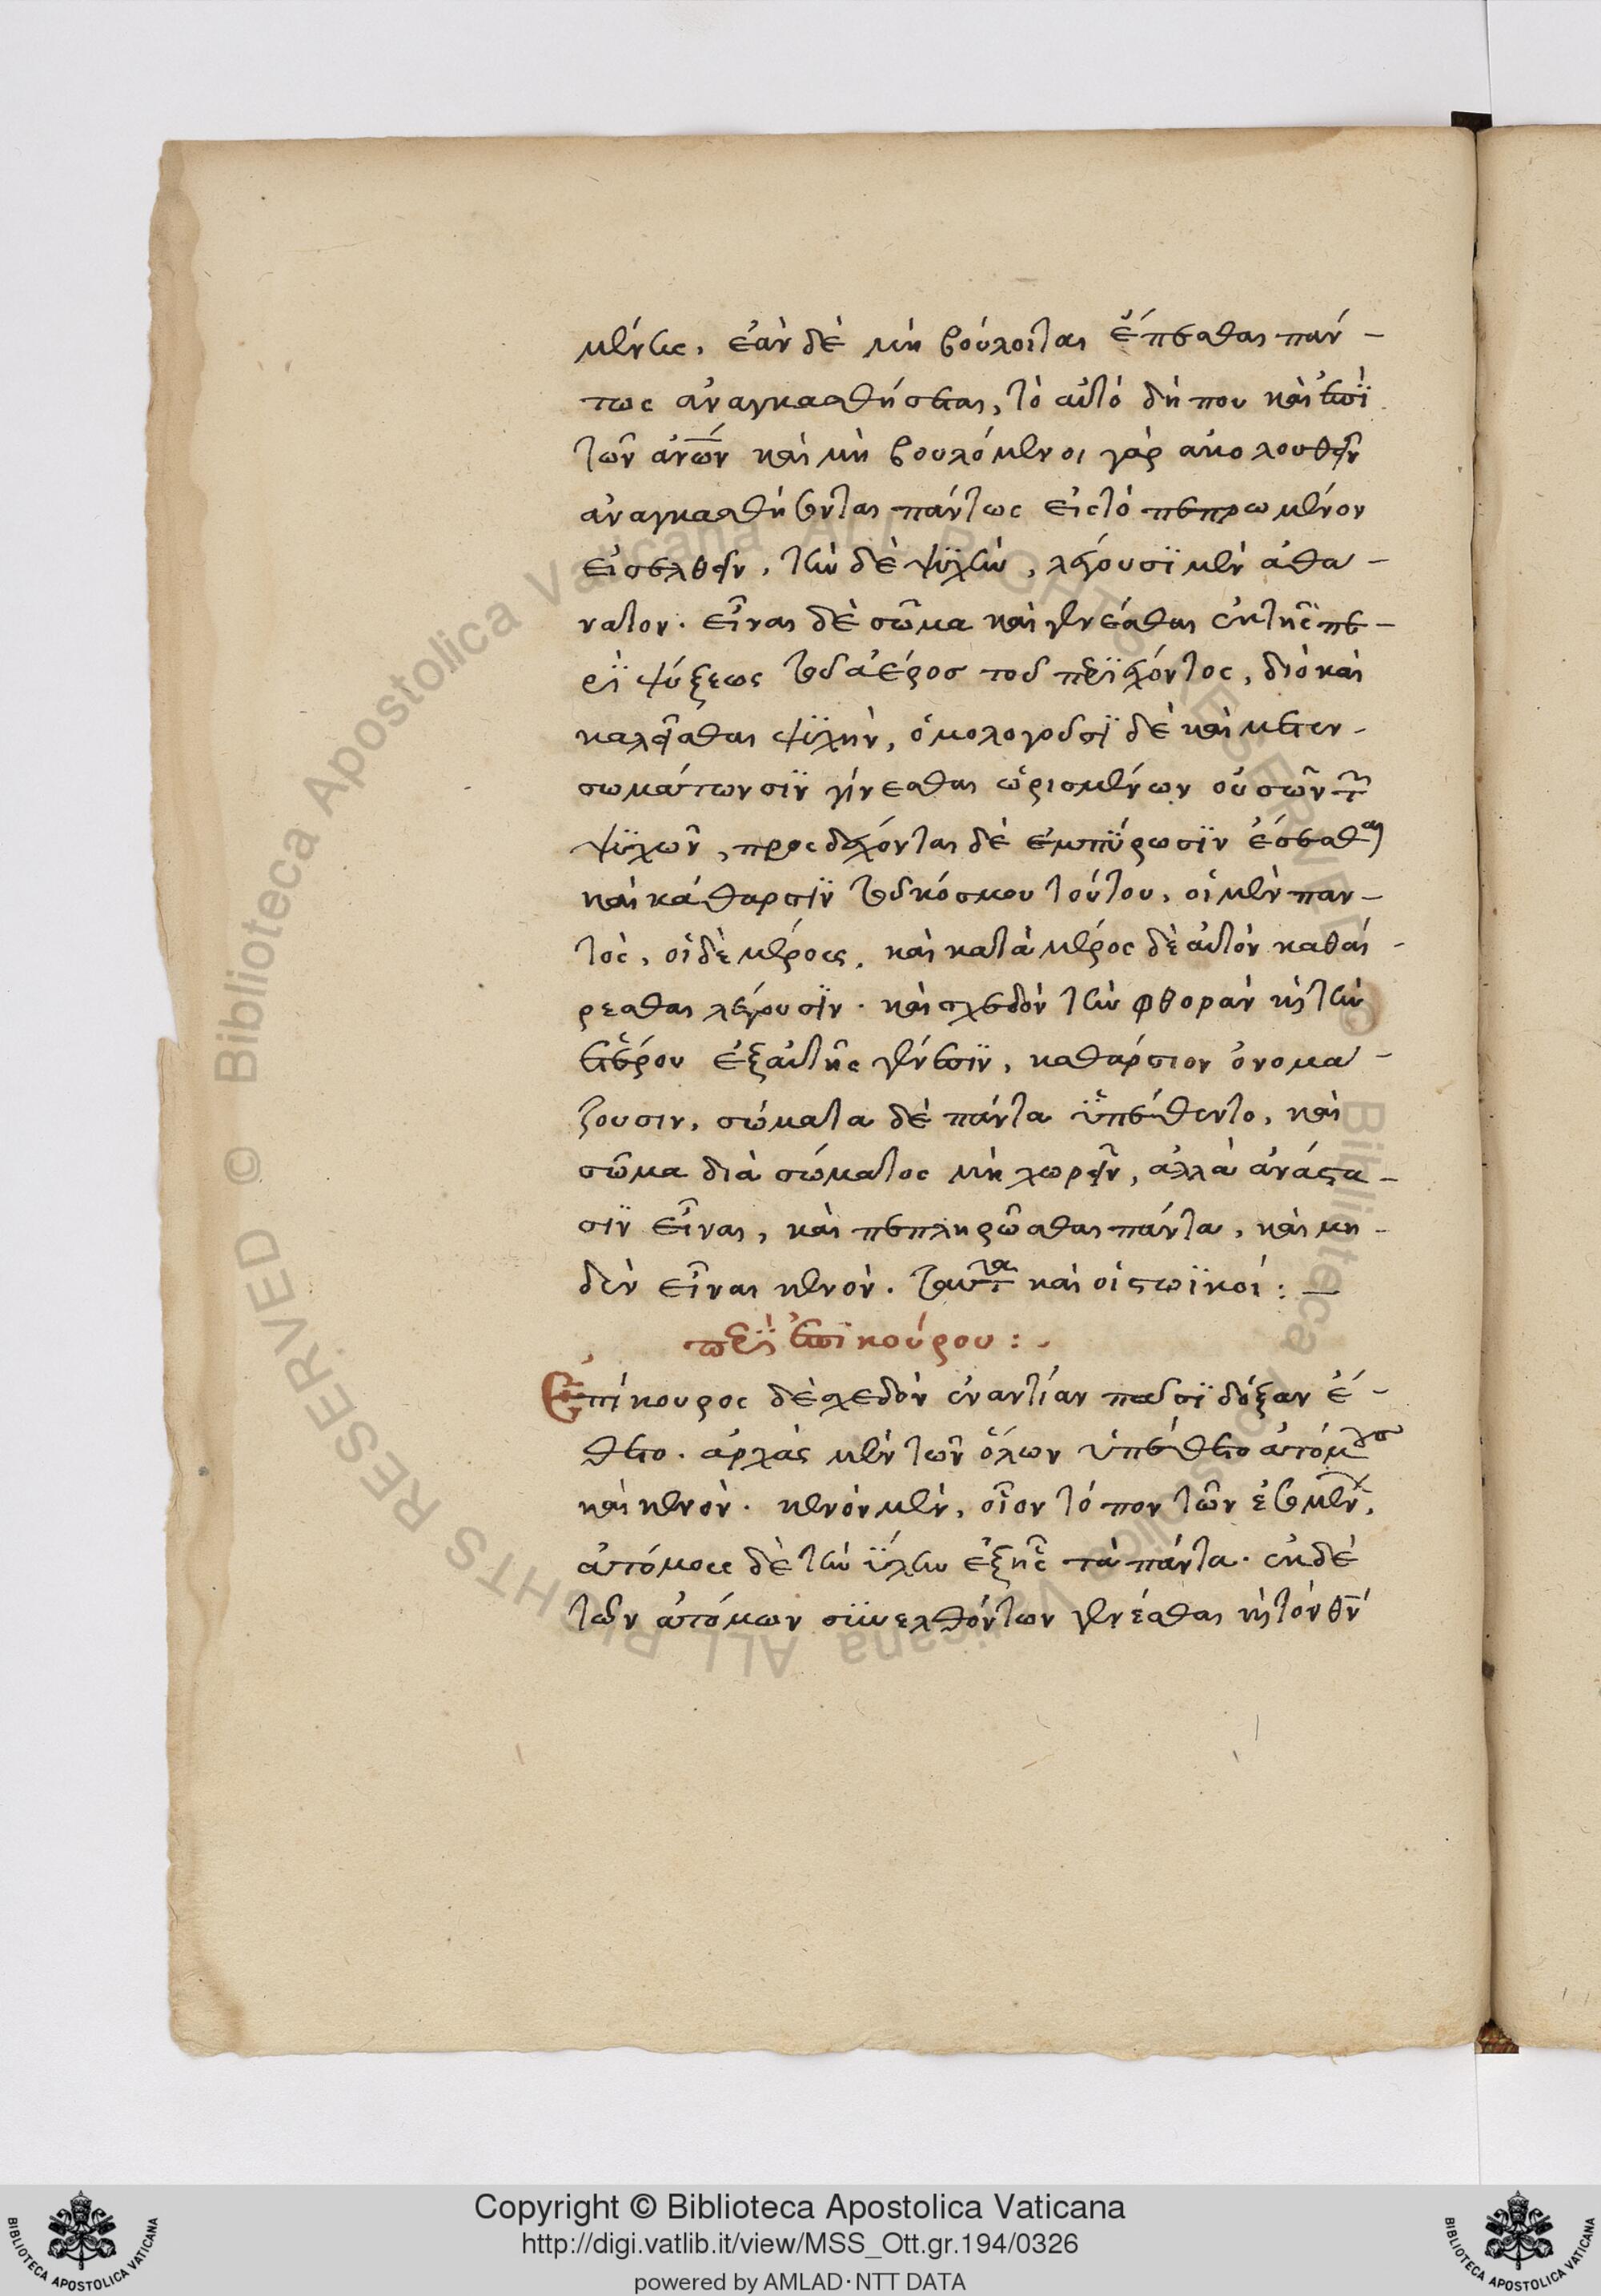 μένης, ἐὰν δὲ μὴ βούλοιται ἕπεσθαι πάν-
τως ἀναγκασθήσεται, τὸ αὐτὸ δή που καὶ ἐπὶ
τῶν ἀνων καὶ μὴ βουλόμενοι γὰρ ἀκολουθεῖν
ἀναγκασθήσονται πάντως εἰς τὸ πεπρωμένον
εἰσελθεῖν, τὴν δὲ ψυχὴν, λέγουσι μὲν ἀθά-
νατον. εἶναι δὲ σῶμα καὶ γενέσθαι ἐκ τῆς πε-
ρὶ ψύξεως τοῦ ἀέρος τοῦ περιέχοντος, διὸ καὶ
καλεῖσθαι ψυχὴν, ὁμολογοῦσι δὲ καὶ μετεν-
σωμάτωσιν γίνεσθαι ὡρισμένων οὐσῶν τ
ψυχῶν, προσδέχονται δὲ ἐμπύρωσιν ἔσεσθαι
καὶ κάθαρσιν τοῦ κόσμου τούτου, οἱ μὲν παν-
τὸς, οἱ δὲ μέρους, καὶ κατὰ μέρος δὲ αὐτὸν καθαί-
ρεσθαι λέγουσιν. καὶ σχεδὸν τὴν φθορὰν κὴ τὴν
ἑτέρου ἐξ αὐτῆς γένεσιν, καθάρσιον ὀνομά-
ζουσιν, σώματα δὲ πάντα ὑπέθεντο, καὶ
σῶμα διὰ σώματος μὴ χωρεῖν, ἀλλὰ ἀνάστα-
σιν εἶναι, καὶ πεπληρῶσθαι πάντα, καὶ μη-
δὲν εἶναι κενόν. ταῦτα καὶ οἱ στωϊκοί: —
περὶ ἐπικούρου:.
Ἐπίκουρος δὲ σχεδὸν ἐναντίαν πᾶσι δόξαν ἔ-
θετο. ἀρχὰς μὲν τῶν ὅλων ὑπέθετο ἀτόμους
καὶ κενόν. κενὸν μὲν, οἷον τόπον τῶν ἐσομένων,
ἀτόμους δὲ τὴν ὕλην ἐξ ἧς τὰ πάντα. ἐκ δὲ
τῶν ἀτόμων συνελθόντων γενέσθαι κὴ τὸν θν
Copyright © Biblioteca Apostolica Vaticana
http://digi.vatlib.it/view/MSS_Ott.gr.194/0326
powered by AMLAD·NTT DATA